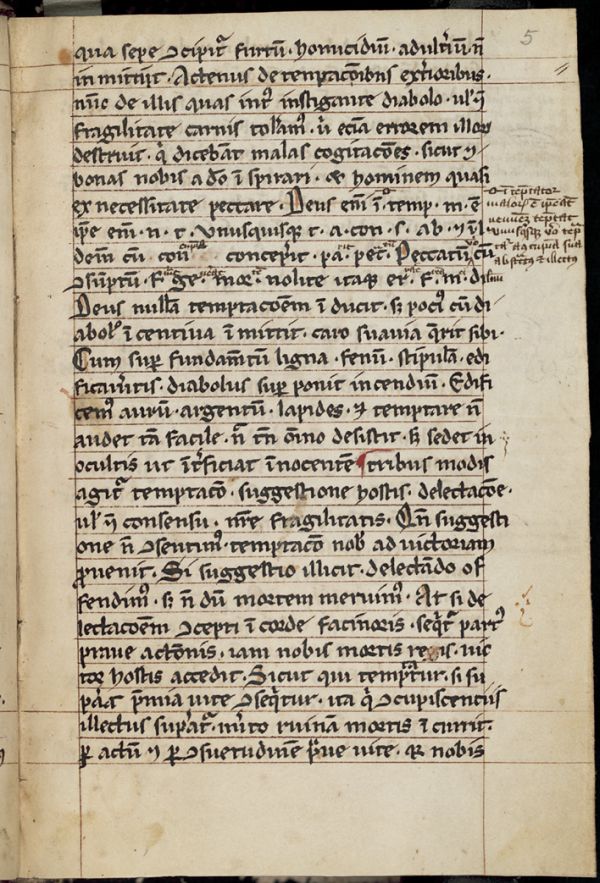 5
qua sepe ↄcipit᷑ furtū · homicidiū · adult͛iū · n̄
in mittit · Actenus de temptac̄onibus ext͛ioribus ·
nūc de illis quas int͛ instigante diabolo · ul̓ ꝙ
fragilitate carnis toll̓am᷒ · u̓ eciā errorem illoꝝ
destruit · q̓ dicebāt malas cogitac̄oes · sicut ⁊
bonas nobis a do̓ ī spirari · & hominem quasi
ex necessitate peccare · Deus em̄ ī temp · m · ē
ip̄e em̄ · n · t · Vnusquisque t · a · con · s · ab · ⁊ il
dem̄ cū con concep̓it · pa · pec̄ · Peccatū cū
ↄsūptū · F · ge · mor · nolite itaqꝫ er · f · m · di
Deus nullā temptac̄oem ī ducit · sꝫ poci᷒ cū di
abol̓ ī centiua ī mittit · caro suauia q̄rit sibi ·
Cum sup̱ fundam̄tū ligna · fenū · stipulā · edi
ficau͛itis · diabolus sup̱ ponit incendiū · Edifi
cem᷒ aurū · argentū · lapides · ⁊ temptare n̄
audet tā facile · n̄ tn̄ om̄ino desistit · sꝫ sedet in
ocultis ut īt͛ficiat ī nocentē tribus modis
agit᷑ temptac̄o · suggestione hostis · delectac̄oe ·
ul̓ ꝙ consensu · nr̄e fragilitatis · Qn̄ suggesti
one n̄ ↄsentim᷒ · temptac̄o nob̓ ad uictoriam
ꝓuenit · Si suggestio illicit · delectādo of
fendim᷒ · sꝫ n̄ dū mortem meruim᷒ · At si de
lectac̄oem ↄcepti ī corde facinoris · seq̄t᷑ part᷒
praue actōnis · iam nobis mortis reis · uic
tor hostis accedit · Sicut qui temp̄t᷑tur · si su
p̱at p̄mia uite ↄseq̄tur · ita q̓ ↄcupiscentiis
illectus sup̱at᷑ · m͛ito ruinā mortis ī currit ·
p̱ actū ⁊ p̱ ↄsuetudinē p̄ue uite · qꝫ nobis